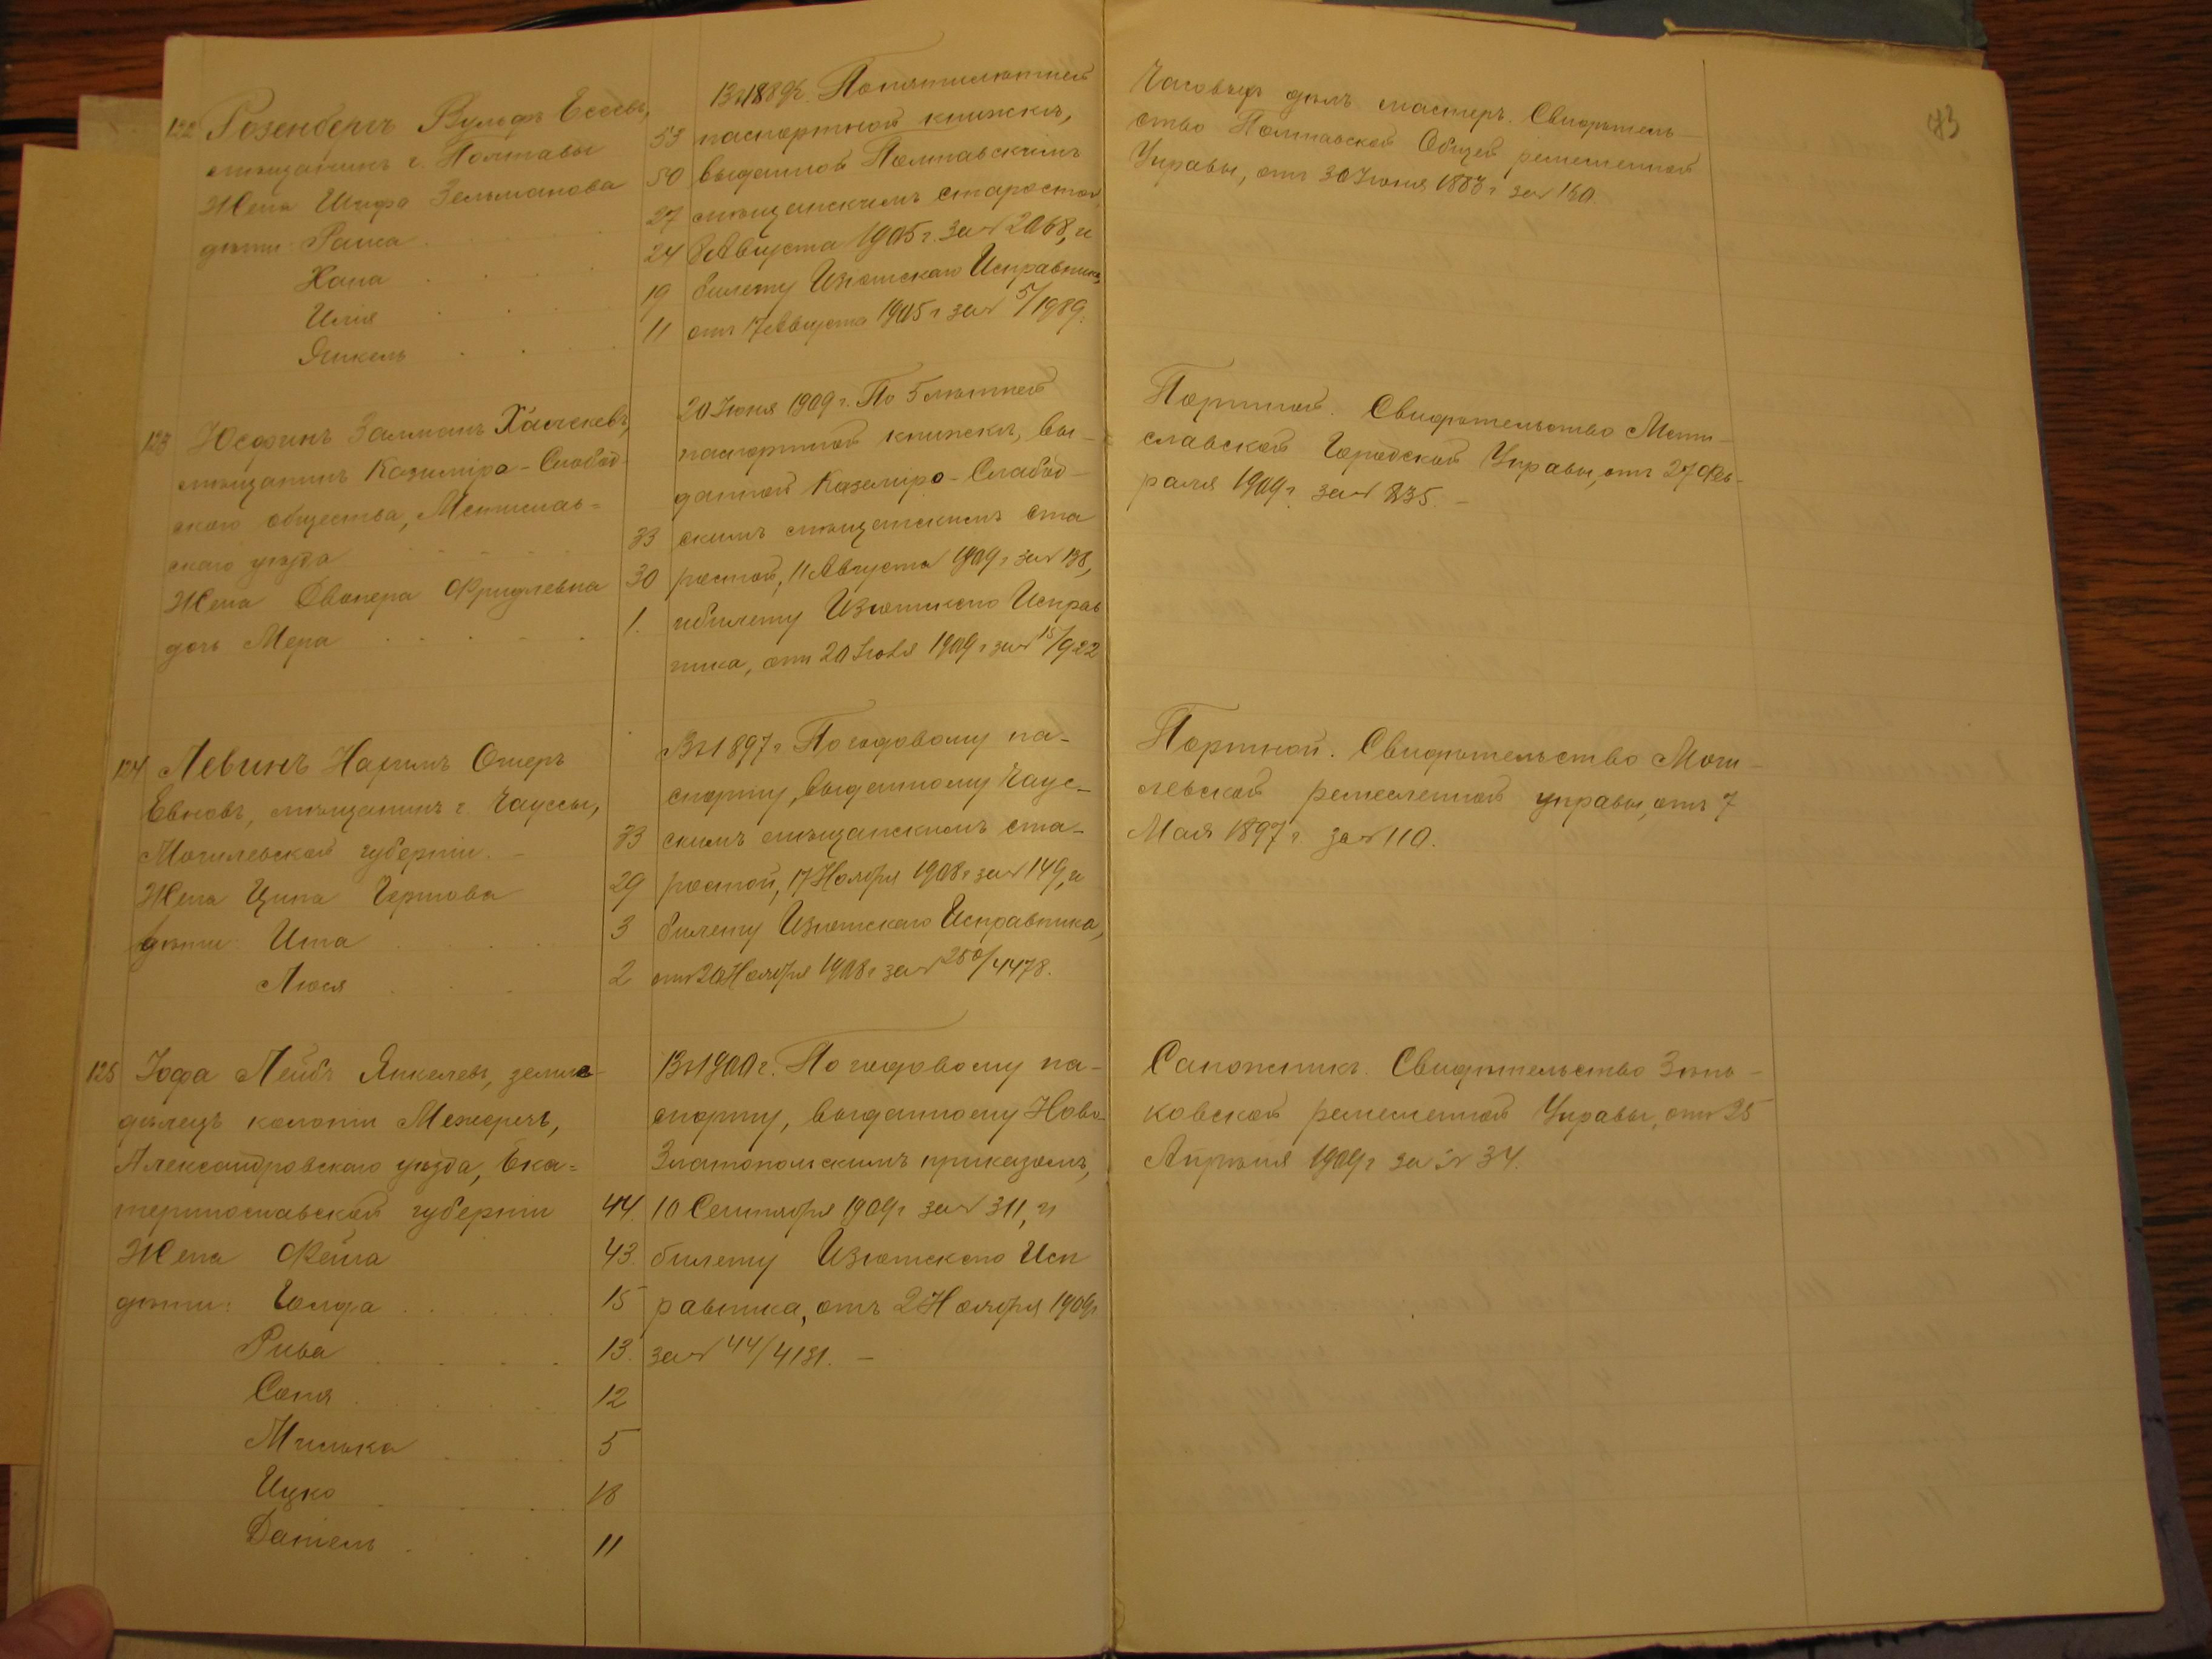 43
122 Розенбергъ Вульфъ Есеевъ,
мѣщанинъ г. Полтавы 53
Жена Шифра Зельманова 50
дѣти: Раиса 27
Хана 24
Илія 19
Янкель 11
Въ 1889г. По пятилѣтней
паспортной книжкѣ,
выданной Полтавскимъ
мѣщанскимъ старостой,
8 Августа 1905 г. за № 2068, и
билету Изюмскаго Исправника,
отъ 17 Августа 1905 г за № 5/1989.
Часовыхъ дѣлъ мастеръ. Свидѣтель-
ство Полтавской Общей ремесленной
Управы, отъ 30 Июня 1883 г. за № 150.
123 Юсфинъ Залманъ Хаческевъ,
мѣщанинъ Казиміро-Слобод-
скаго общества, Мстислав-
скаго уѣзда 33
Жена Двойера Фридлевна 30
дочь Мера 1.
20 Июня 1909 г. По 5 лѣтней
паспортной книжкѣ, вы-
данной Казиміро-Слабод-
скимъ мѣщанскимъ ста
ростой, 11 Августа 1909 г за № 138,
и билету Изюмскаго Исправ
ника, отъ 20 Июля 1909 г за № 15/922
Портной. Свидѣтельство Мсти-
славской Городской Управы, отъ 27 Фев-
раля 1909 г. за № 235.-
124 Левинъ Нахимъ Ошеръ
Евновъ, мѣщанинъ г. Чауссы,
Могилевской губерніи. - 33
Жена Ципа Чернова 29
дѣти: Ита 3
Люся 2
Въ 1897 г По годовому па-
спорту, выданному Чаус-
скимъ мѣщанскимъ ста-
ростой, 17 Ноября 1908 г за № 149, и
билету Изюмскаго Исправника,
отъ 20 Ноября 1908 г за № 250/4478.
Портной. Свидѣтельство Моги-
левской ремесленной управы, отъ 7
Мая 1897 г. за № 110.
125 Іофа Лейбъ Янкелевъ, земле-
дѣлецъ колоніи Межеречъ,
Александровскаго уѣзда, Ека-
теринославской губерніи 44.
Жена Фейга 43.
дѣти: Голда 15
Рива 13.
Соня 12
Милька 5
Ицко 18
Даніелъ 11
Въ 1900 г. По годовому па-
спорту, выданному Ново-
Златопольскимъ приказомъ,
10 Сентября 1909 г за № 311, и
билету Изюмскаго Исп
равника, отъ 2 Ноября 1909 г
за № 44/4131. -
Сапожникъ. Свидѣтельство Зинь-
ковской ремесленной Управы, отъ 25
Апрѣля 1909 г за № 34.